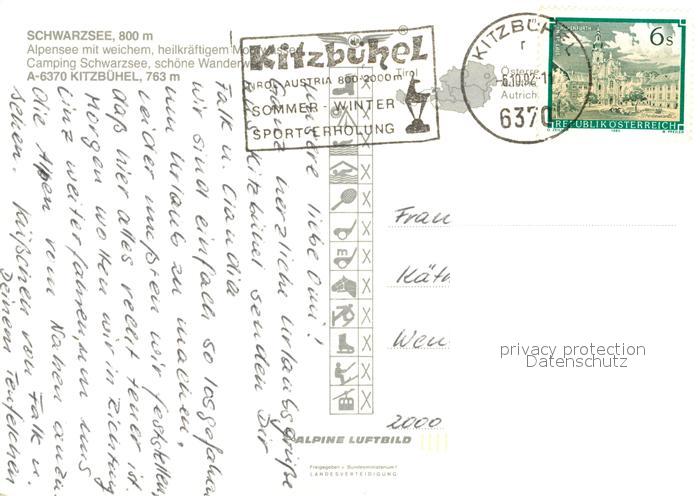 SCHWARZSEE, 800 m
Alpensee mit weichem, heilkräftigem
Camping Schwarzsee, schöne Wanderw
A-6370 KITZBÜHEL, 763 m
Kitzbühel
TIROL AUSTRIA 800-2000m
Tirol
SOMMER - WINTER
SPORT-ERHOLUNG
KITZBÜHEL
6370
Österre
Autrich
6s
REPUBLIK ÖSTERREICH
liebe Omi!
herzliche Urlaubsgrüße
aus Kitzbühel senden Dir
Falk u. Claudia
wir sind einfach so losgefahren
um Urlaub zu machen,
leider mußten wir feststellen,
daß hier alles recht teuer ist.
Morgen wollen wir in Richtung
Linz weiterfahren, um uns
die Alpen von Nahen anzu-
sehen. Küßchen von Falk u.
Deinem Teufelchen
Frau
Käth
Wen
2000
privacy protection
Datenschutz
ALPINE LUFTBILD
Freigegeben v. Bundesministerium f.
LANDESVERTEIDIGUNG